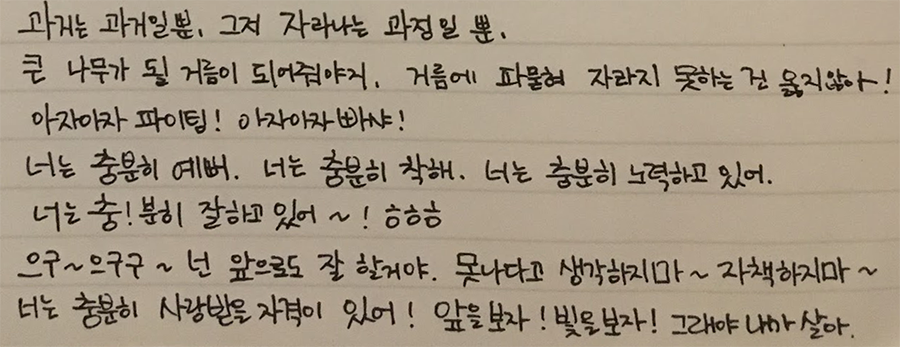 과거는 과거일뿐, 그저 자라나는 과정일 뿐,
큰 나무가 될 거름이 되어줘야지, 거름에 파묻혀 자라지 못하는 건 옳지않아!
아자아자 파이팅! 아자아자 빠샤!
너는 충분히 예뻐. 너는 충분히 착해. 너는 충분히 노력하고 있어.
너는 충!분히 잘하고 있어~! ㅎㅎㅎ
으구~으구구~ 넌 앞으로도 잘 할거야. 못나다고 생각하지마~ 자책하지마~
너는 충분히 사랑받을 자격이 있어! 앞을보자! 빛을보자! 그래야 내가 살아.